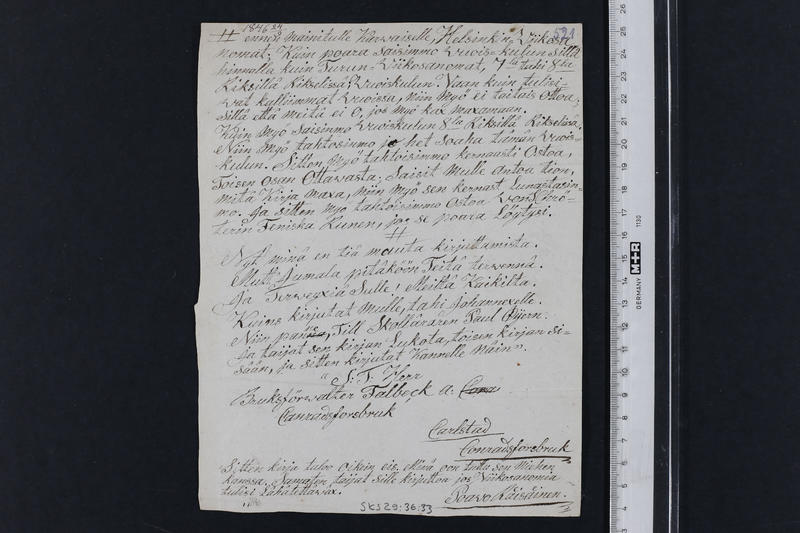 1846 24
521
# ennen mainitulle Karwaiselle, Helsinkin Wiikosa
nomat; Kuin poara Saisimmo Wuois-kulun Sillä
hinnalla kuin Turun Wiikosanomat, 7 lla tahi 8 lla
Kiksillä Kikselissä Wuoiskulun. Vaan kuin tulisi
wat kalliimmat Wuoissa, niin Myö ei taitais Ottoa;
Sillä että meitä ei O, jos myö kax maxamaan.
Kuin Myö Saisinmo Wuoiskulun 8 lla Kiksillä Kikselissä,
Niin Myö tahtosinmo het Soaha tämän Wuois-
kulun. Sitten Myö tahtoisimmo kernausti Ostoa,
Toisen Osan Ottawasta; Saisit Mulle antoa tion,
mitä Kirja maxa, niin Myö sen kernast lunastasin-
mo. Ja sitten Myö tahtoisimmo Ostoa
terin Feniska Runen, jos se poara löytyst.
#
Nyt minä en tiä mauta kirjuttamista.
Mutt Jumala pitäköön Teitä terwennä.
Ja Terweyxiä Sulle! Meiltä Kaikilta.
Kuins kirjutat Mulle, tahi Johannexelle.
Niin Till Skolläraren Paul
Ja taijat sen kirjan Lukota, toisen kirjan Si-
sään, ja sitten kirjutat Kannelle Näin".
"S. T. Herr
Bruksförwalter Falbeck a:
Conradsforsbruk
Carlstad
Conradsforsbruk
Sitten kirja tuloo Oikein eis. Minä oon tuttu sen Miehen
kanssa. taijat Sille kirjuttoa jos Wiikosanomia
tulisi Lähätettäwäx.
Poavo Räisäinen.
SKS 29:36:33
GERMANY
1130
M+R
14
15
16
17
18
19
20
21
22
23
24
25
26